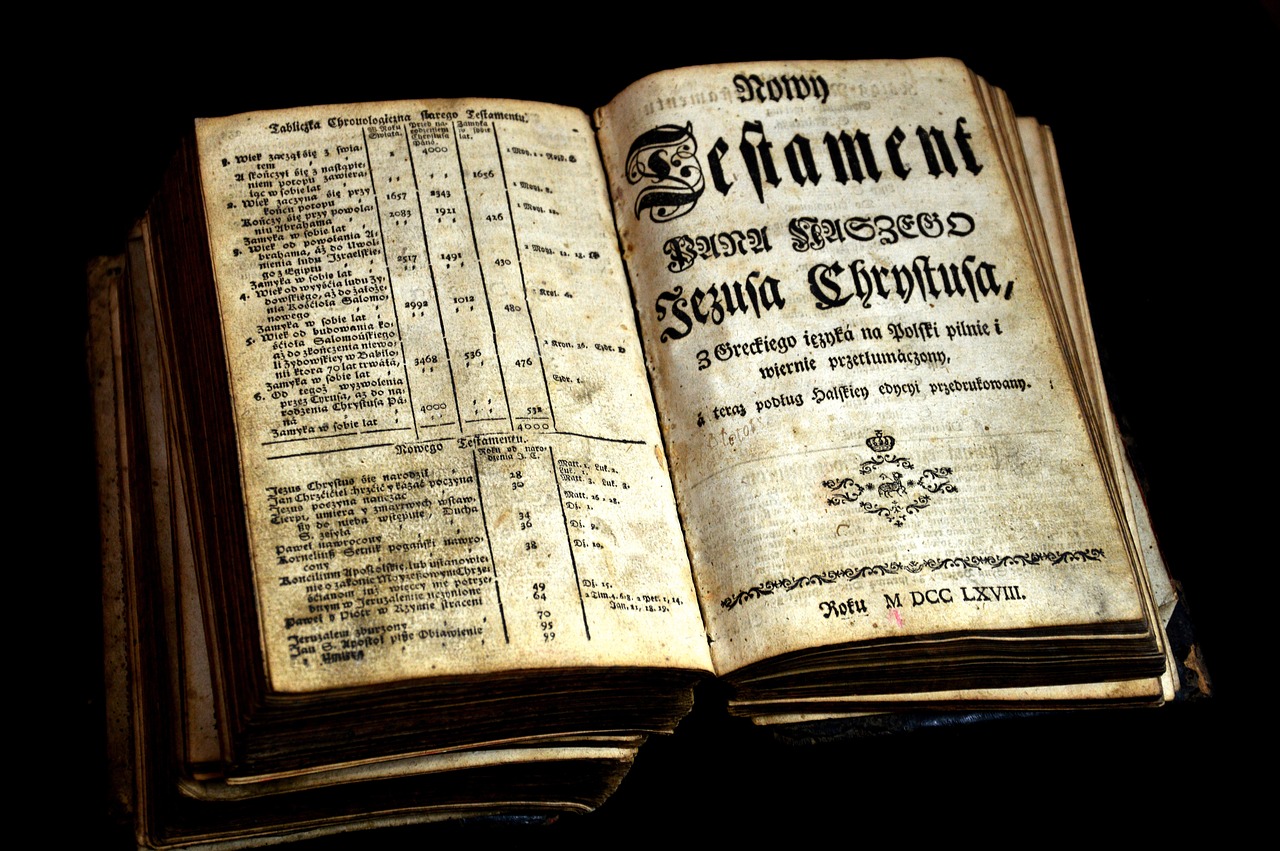 Tabliczka Chronologiczna starego Testamentu.
W Roku Swiata. Przed na- rodzeniem Chrystusa Pana. Zamyka w sobie lat.
1. Wiek zaczął się z świa-
tem 1 4000 1 Moy. 1
A skończył się z nastąpie-
niem potopu zawiera-
iąc w sobie lat 1656
2. Wiek zaczyna się przy
końcu potopu 1657 2343
Kończy się przy powoła-
niu Abrahama 2083 1921
Zamyka w sobie lat 426
3. Wiek od powołania A-
brahama, aż do Uwol-
nienia ludu Izraelskie-
go z Egiptu 2517 1491
Zamyka w sobie lat 430
4. Wiek od wyyścia ludu Zy-
dowskiego, aż do założe-
nia Kościoła Salomo-
nowego 2992 1012
Zamyka w sobie lat 480
5. Wiek od budowania ko-
ścioła Salomońskiego
aż do zkończenia niewo-
li Zydowskiey w Babilo-
nii ktora 70 lat trwała, 3468 536
Zamyka w sobie lat 476
6. Od tegoż wyzwolenia
przez Cyrusa, aż do na-
rodzenia Chrystusa Pa-
na 4000
Zamyka w sobie lat 532
4000
Nowego Testamentu.
Roku od naro-
dzenia J. C.
Jezus Chrystus się narodził
Jan Chrzciciel chrzcić y kazać poczyna 28
Jezus poczyna nauczać 30
Cierpi, umiera y zmartwych wstaw-
szy do nieba wstępuie, Ducha
S. zsyła 34
Paweł nawrocony 36
Korneliusz Setnik pogański nawro-
cony 38
Koncilium Apostolskie, lub ustanowie-
nie o zakonie Moyzeszowym Chrze-
ścianom iuż więcey nie potrze-
bnym w Jeruzalemie uczynione 49
Paweł y Piotr w Rzymie straceni 64
Jeruzalem zburzony 70
Jan S. Apostoł pisze Obiawienie 95
y umiera 99
Nowy
Testament
PANA NASZEGO
Jezusa Chrystusa,
Z Greckiego ięzyká na Polski pilnie i
wiernie przetłumáczony,
á teraz podług Halskiey edycyi przedrukowany.
Roku M DCC LXVIII.